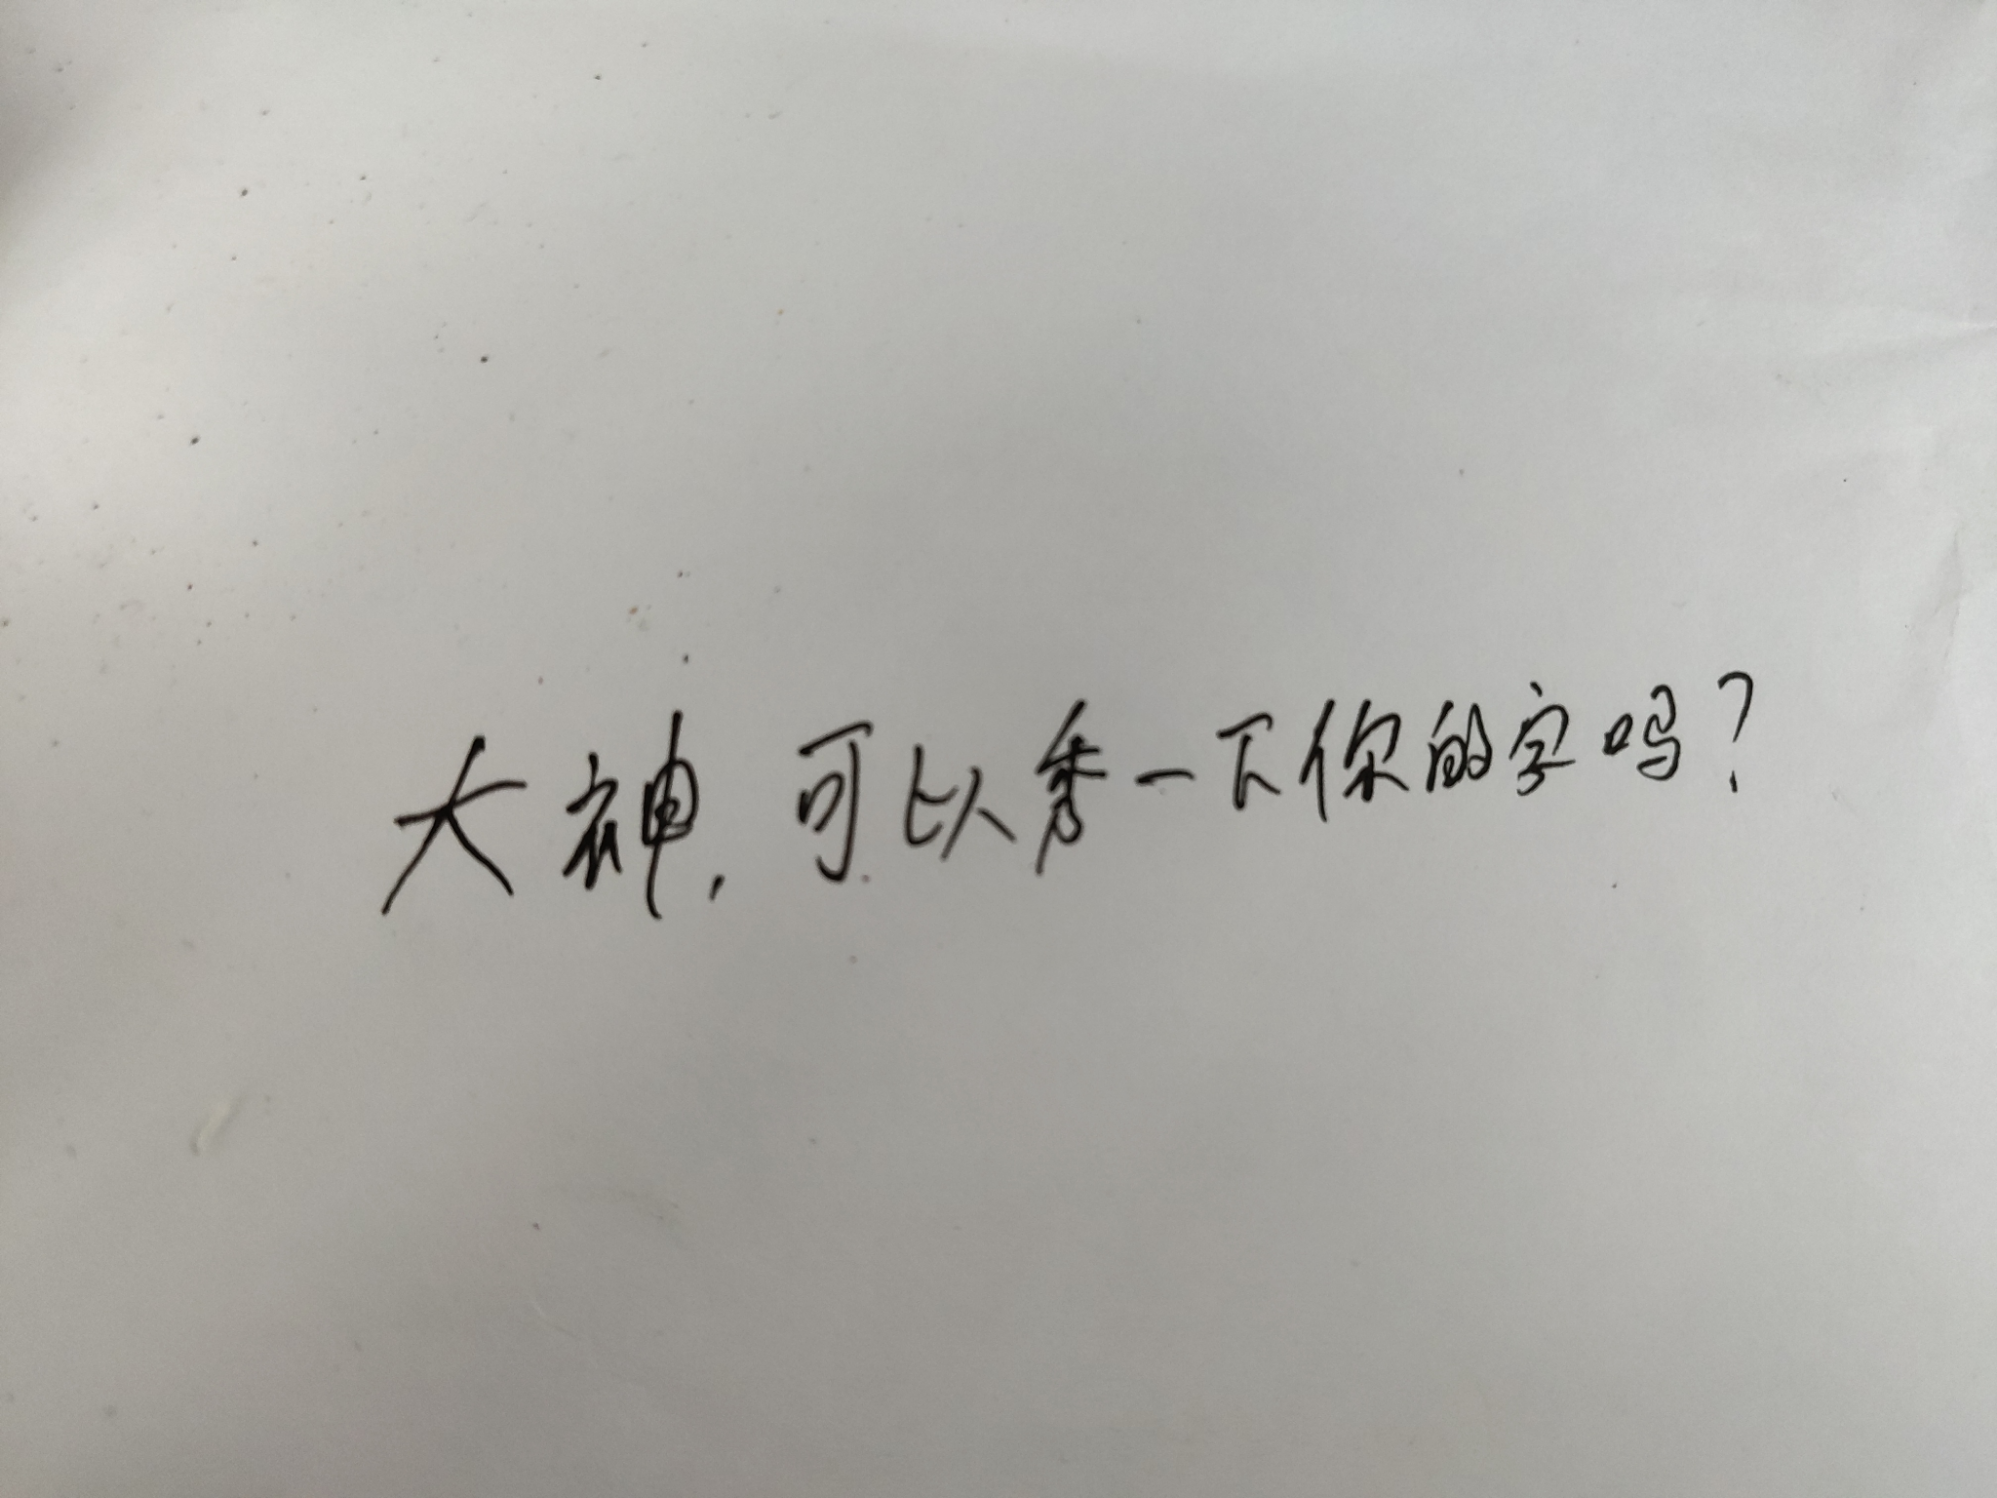 大神，可以秀一下你的字吗？